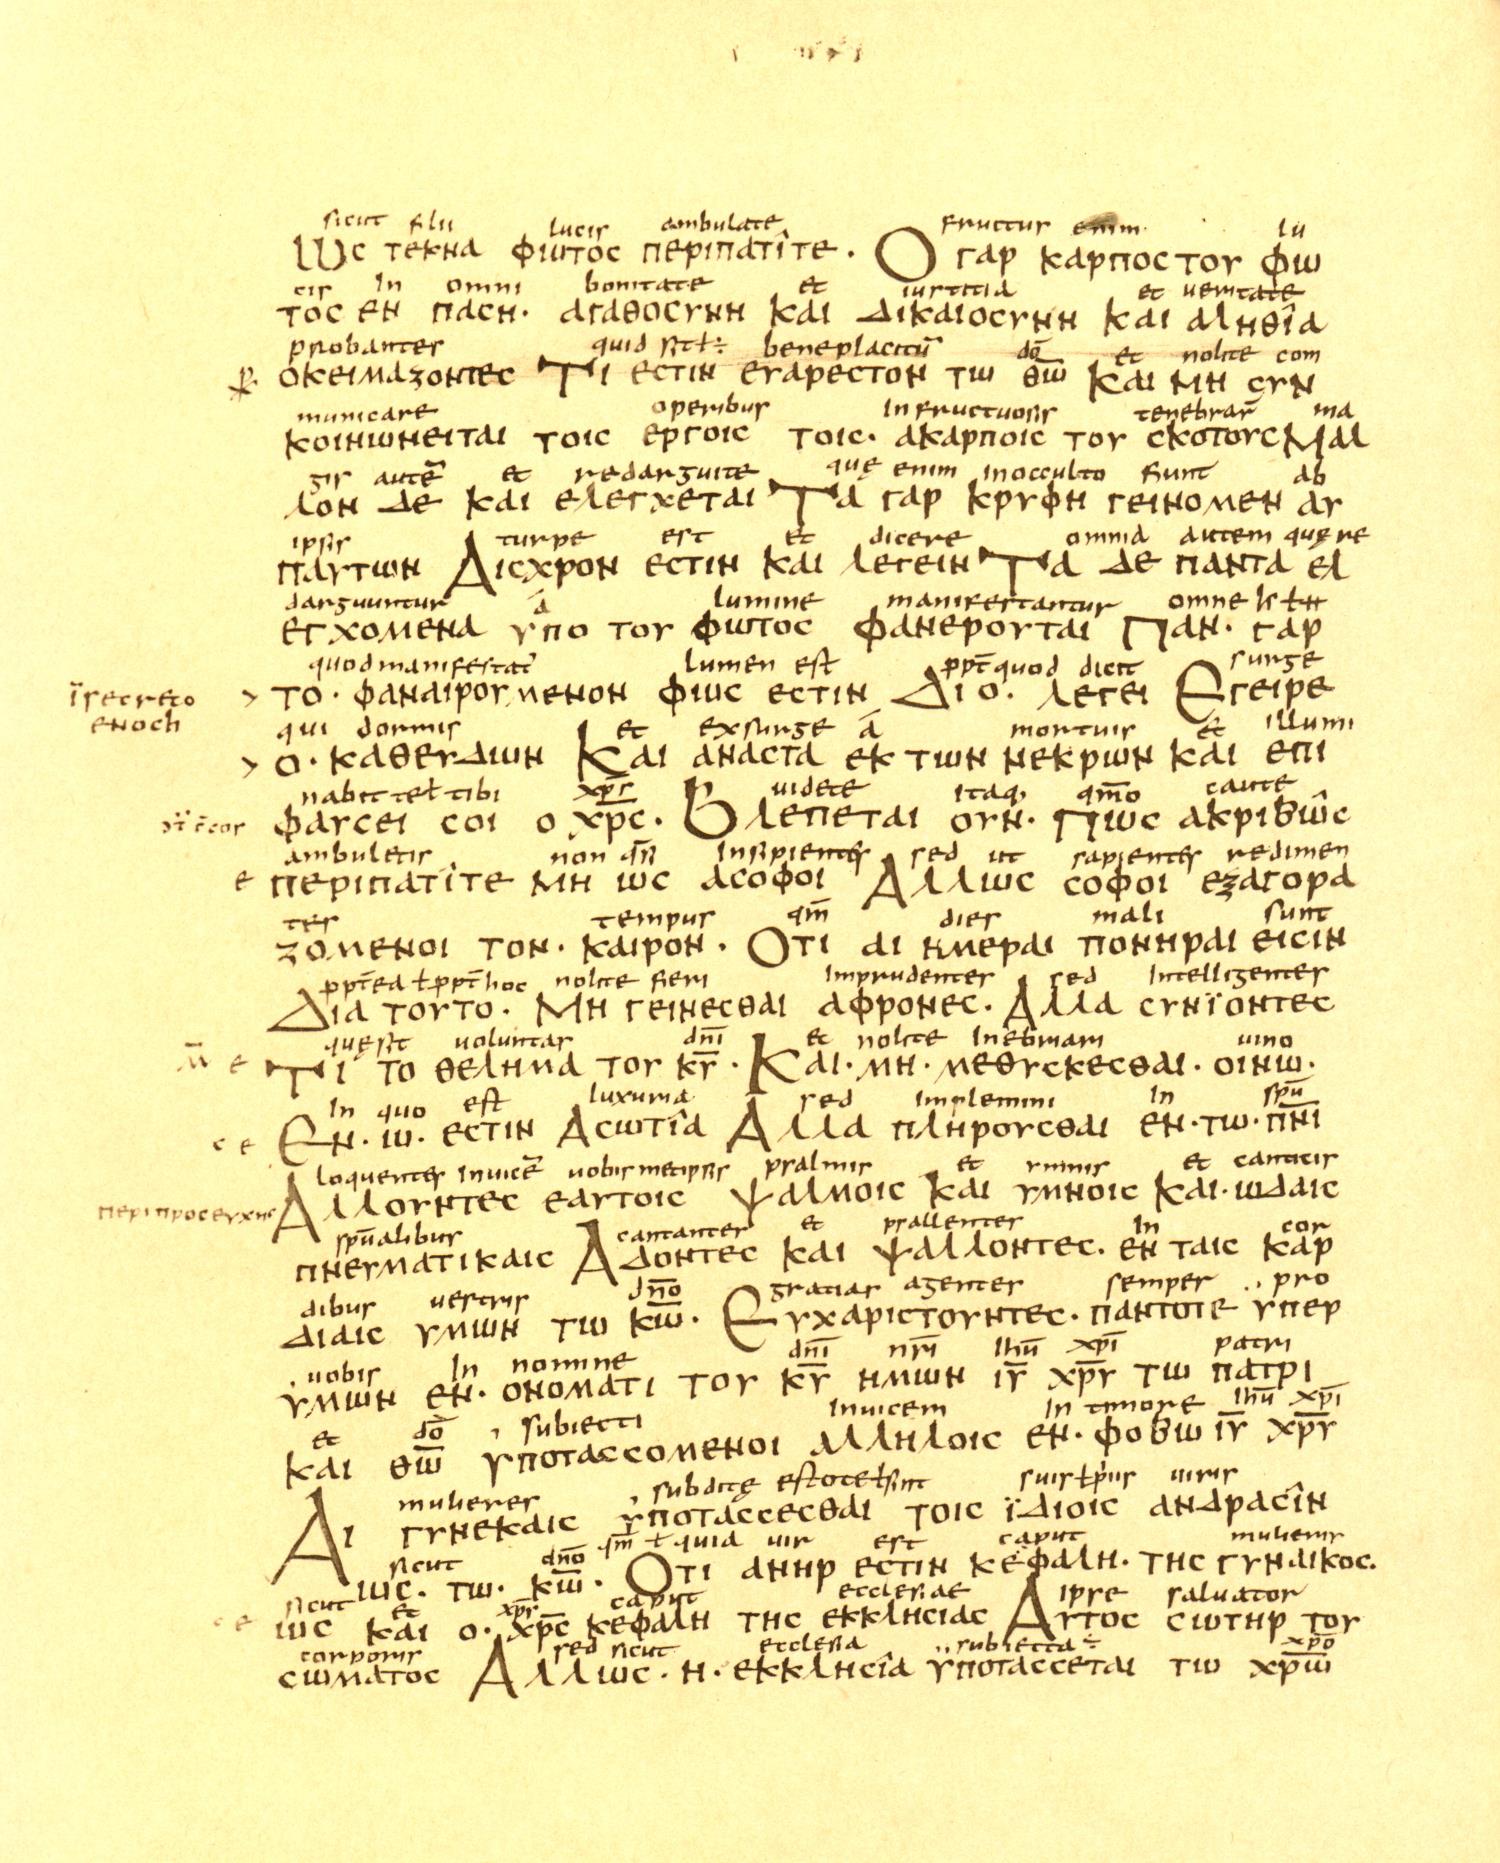 sicut filii lucis ambulate fructus enim lu
Ως τεκνα φωτος περιπατῖτε · Ο γαρ καρπος του φω
cis in omni bonitate et iustitia et ueritate
τος εν παση · αγαθοσυνη και δικαιοσυνη και αληθῖα
probantes quid sit ł ÷ beneplacitū dō et nolite com
οκειμαζοντες Τι εστιν ευαρεστον τω θω̅ Και μη συν
municare operibus infructuosis tenebrarū ma
κοινωνειται τοις εργοις τοις · ακαρποις του σκοτους Μαλ
gis autē et redarguite quę enim in occulto fiunt ab
λον δε και ελεγχεται Τα γαρ κρυφη γεινομεν αυ
ipsis turpe est et dicere omnia autem quę re
παυτων Αισχρον εστιν και λεγειν Τα δε παντα ελ
darguuntur a lumine manifestantur omne
εγχομενα υπο του φωτος φανερουται Παν · γαρ
quod manifestat lumen est ppt̄ quod dicit surge
το · φαναιρουμενον φως εστιν Διο · λεγει Εγειρε
ī secreto
enoch
qui dormis et exsurge a mortuis et illumi
ο · καθευδων Και αναστα εκ των νεκρων και επι
nabit te ł tibi xp̅s uidete itaq, qm̅o caute
φαυσει σοι ο χρ̅ς · Βλεπεται ουν · Πως ακριβως
ambuletis non qsi insipientes sed ut sapientes redimen
περιπατῖτε μη ως ασοφοι Αλλως σοφοι εξαγορα
tes tempus qm̅ dies mali sunt
ζομενοι τον · καιρον · Οτι αι ημεραι πονηραι εισιν
ppt̄ ea ł ppt̄ hoc nolite fieri imprudentes sed intelligentes
Δια τουτο · Μη γεινεσθαι αφρονες · Αλλα συνϊοντες
quę sit voluntas dn̅i et nolite inebriari uino
Τι το θελημα του κυ̅ · Και · μη · μεθυσκεσθαι · οινω ·
in quo est luxuria sed implemini in spū
Εν · ω · εστιν Ασωτῖα Αλλα πληρουσθαι εν · τω · πν̅ι
loquentes inuicē uobis metipsis psalmis et ymnis et canticis
Αλλουντες εαυτοις ψαλμοις και υμνοις και · ωδαις
περι προσευχης
spūalibus cantantes et psallentes in cor
πνευματικαις Αδοντες και ψαλλοντες · εν ταις καρ
dibus uestris dn̅o gratias agentes semper pro
διαις υμων τω κω̅ · Ευχαριστουντες · παντοτε ϋπερ
uobis in nomine dn̅i nr̅i ihū xp̅i patri
υμων εν · ονοματι του κυ̅ ημων ιυ̅ χρ̅υ τω πατρι
et dō subiecti inuicem in timore ihū xp̅i
και θω̅ υποτασσομενοι αλληλοις εν · φοβω ιυ̅ χρ̅υ
mulieres subditę estote ł sint suis ł uiris
Αι γυνεκαις υποτασσεσθαι τοις ϊδιοις ανδρασῖν
sicut dn̅o qm̅ ł quia uir est caput mulieris
ως · τω · κω̅ · Οτι ανηρ εστιν κεφαλη · της γυναικος ·
sicut et xp̅s caput ecclesiae ipse saluator
ως και ο · χρ̅ς κεφαλη της εκκλησιας Αυτος σωτηρ του
corporis sed sicut ecclesia subiecta ÷ xp̅o
σωματος Αλλως · η · εκκλησῖα ϋποτασσεται τω χρ̅ω